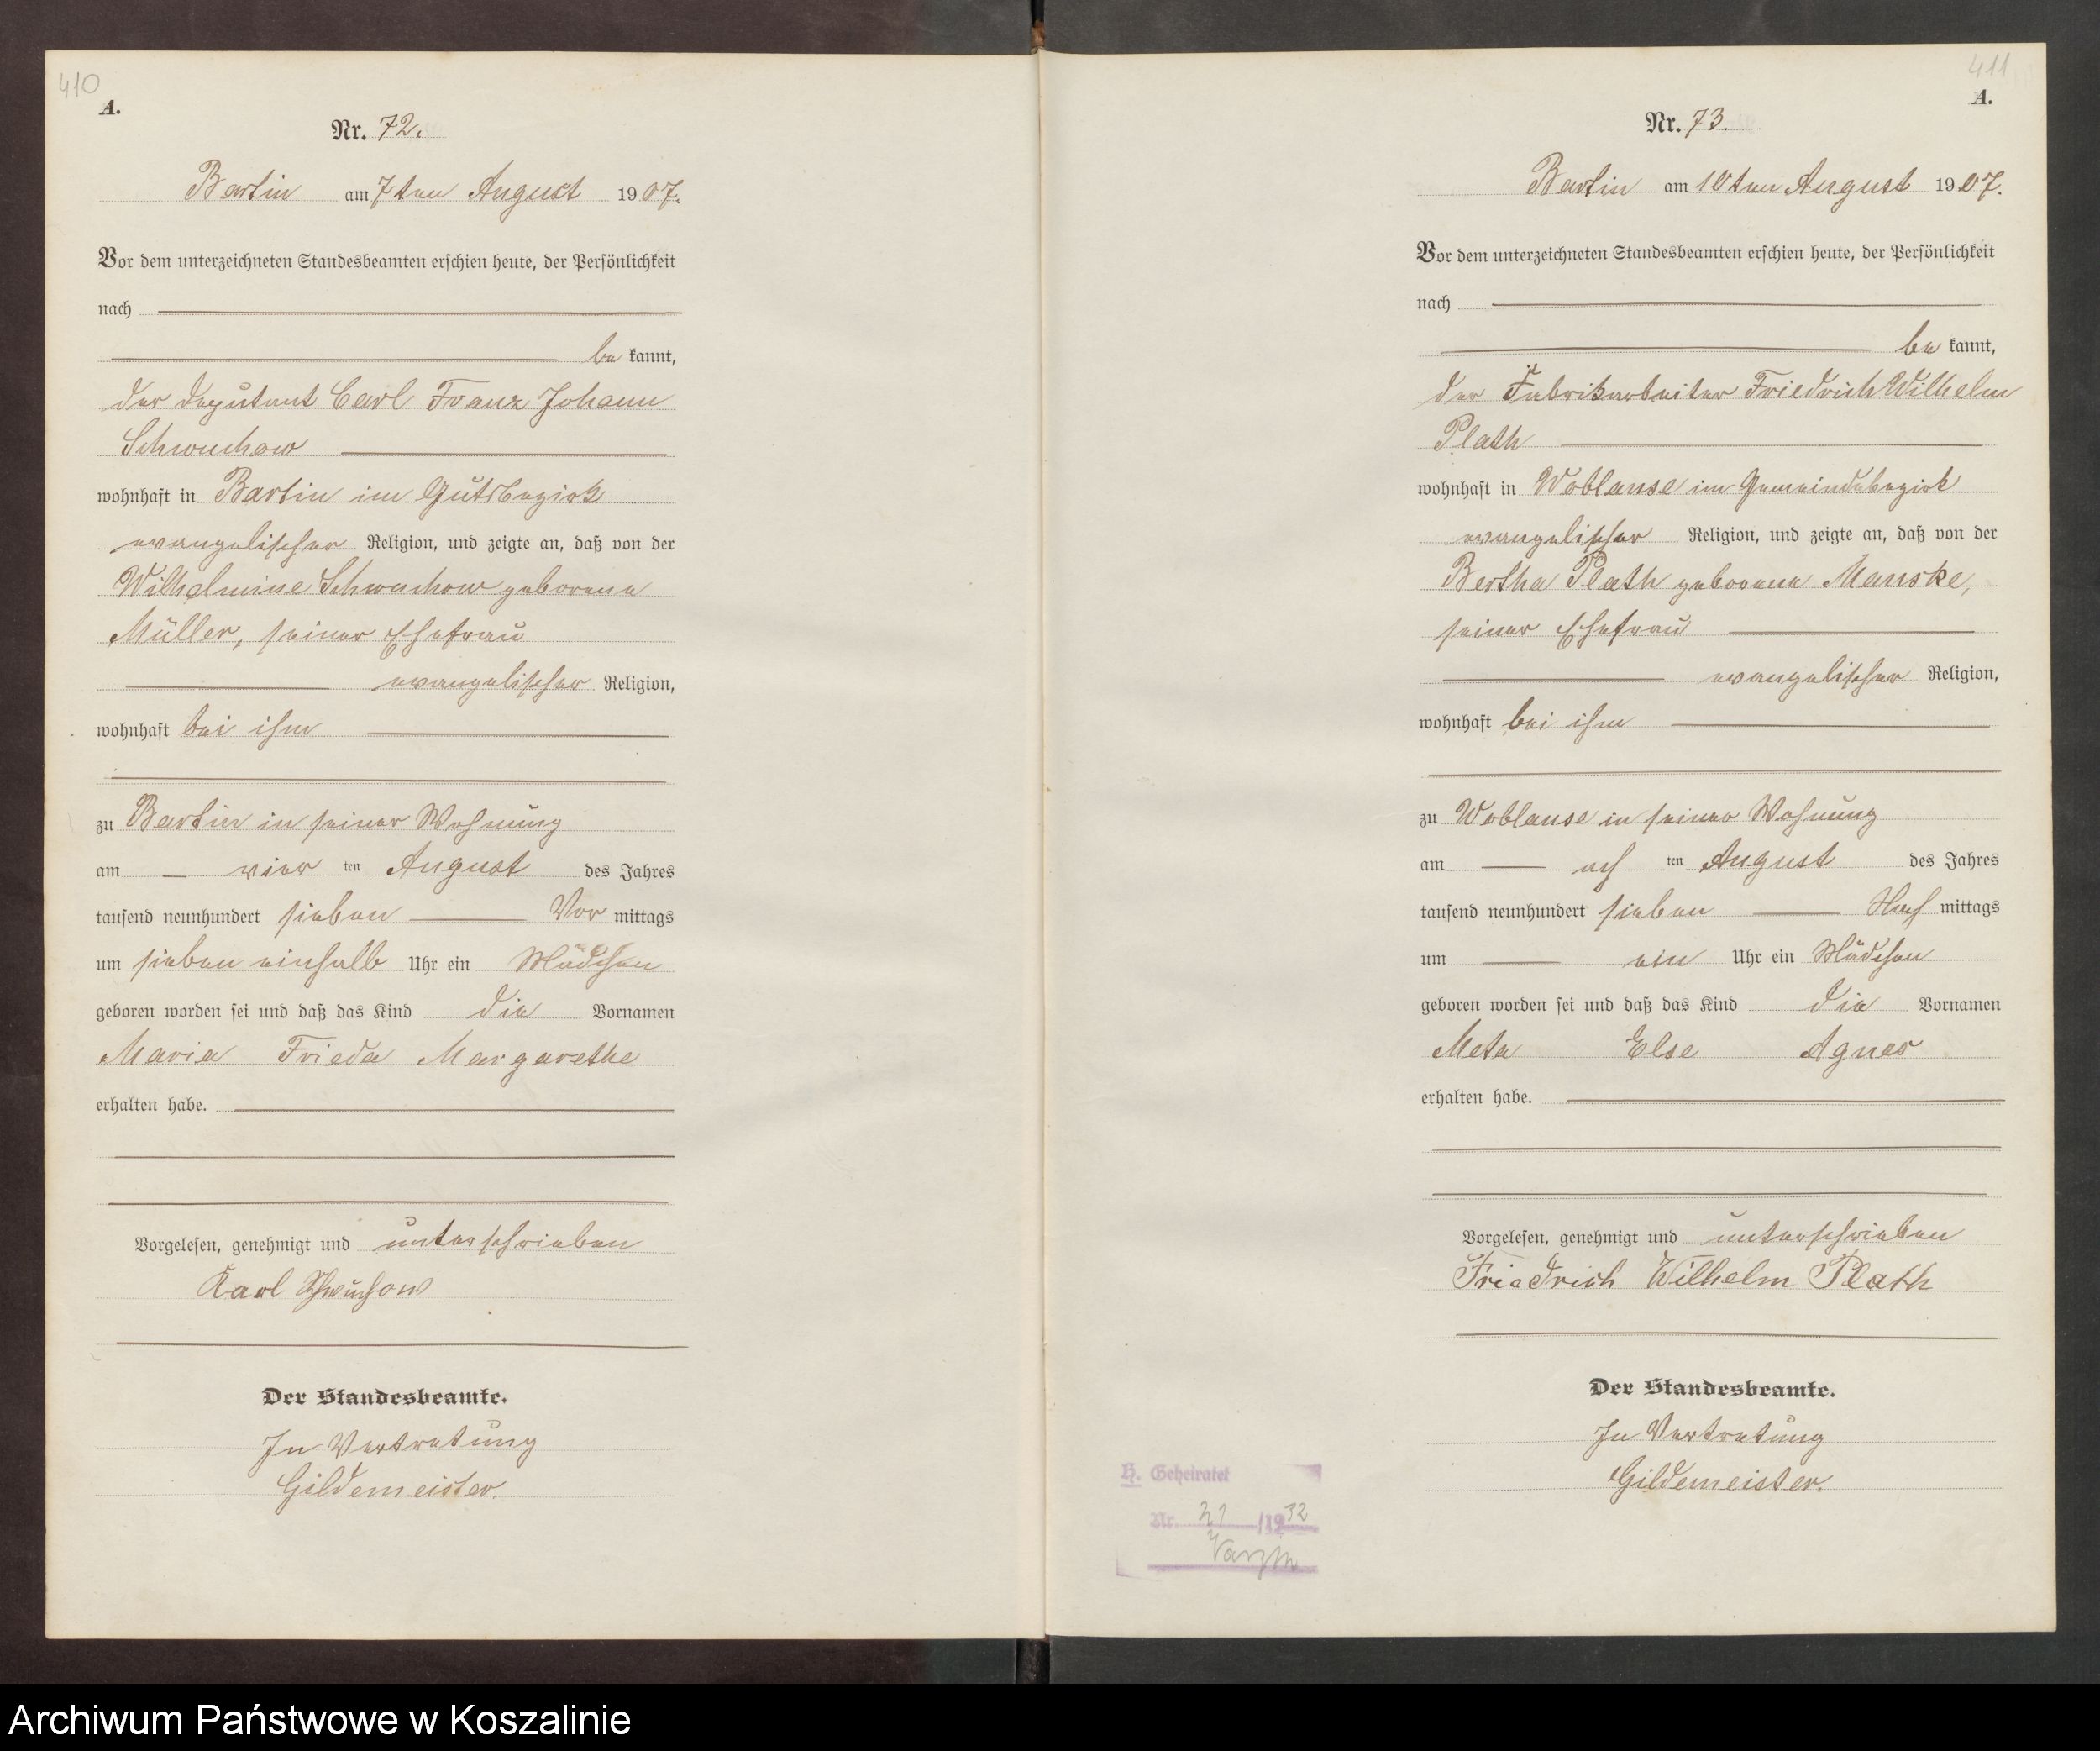 410
A.
Nr. 72.
Bartin am 7ten August 1907.
Vor dem unterzeichneten Standesbeamten erschien heute, der Persönlichkeit
nach
be kannt,
der Deputant Carl Franz Johann
Schwuchow
wohnhaft in Bartin im Gutsbezirk
evangelischer Religion, und zeigte an, daß von der
Wilhelmine Schwuchow geborene
Müller, seiner Ehefrau
evangelischer Religion,
wohnhaft bei ihm
zu Bartin in seiner Wohnung
am vier ten August des Jahres
tausend neunhundert sieben Vor mittags
um sieben einhalb Uhr ein Mädchen
geboren worden sei und daß das Kind die Vornamen
Maria Frieda Margarethe
erhalten habe.
Vorgelesen, genehmigt und unterschrieben
Karl Schwuchow
Der Standesbeamte.
In Vertretung
Gildemeister.
411
A.
Nr. 73.
Bartin am 10ten August 1907.
Vor dem unterzeichneten Standesbeamten erschien heute, der Persönlichkeit
nach
be kannt,
der Fabrikarbeiter Friedrich Wilhelm
Plath
wohnhaft in Woblanse im Gemeindebezirk
evangelischer Religion, und zeigte an, daß von der
Bertha Plath geborene Manske,
seiner Ehefrau
evangelischer Religion,
wohnhaft bei ihm
zu Woblanse in seiner Wohnung
am ach ten August des Jahres
tausend neunhundert sieben Nach mittags
um ein Uhr ein Mädchen
geboren worden sei und daß das Kind die Vornamen
Meta Else Agnes
erhalten habe.
Vorgelesen, genehmigt und unterschrieben
Friedrich Wilhelm Plath
Der Standesbeamte.
In Vertretung
Gildemeister.
H. Geheiratet
Nr. 21 /1932
Varzin
Archiwum Państwowe w Koszalinie